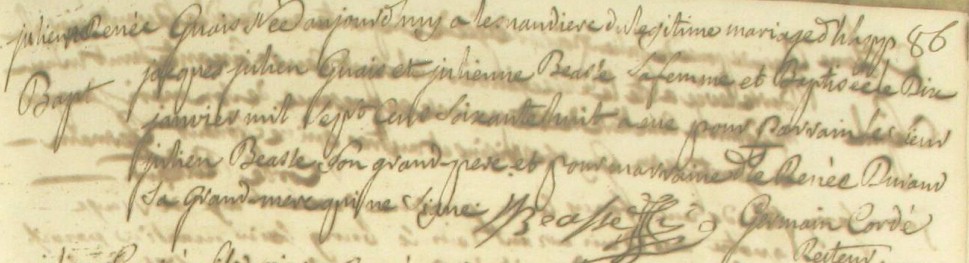 julienne Renée Guais Née aujourd'huy a lesnaudiere du legitime mariage d'h. 86
jacques julien Guais et julienne Beasse sa femme et Baptisée le Dix
Bapt
janvier mil sept Cent soixante huit a eue pour parrain le sieur
julien Beasse son grand-pere et pour marraine Dlle Renée Durand
sa Grand-mere qui ne signe. JBeasse Germain Cordé
Recteur